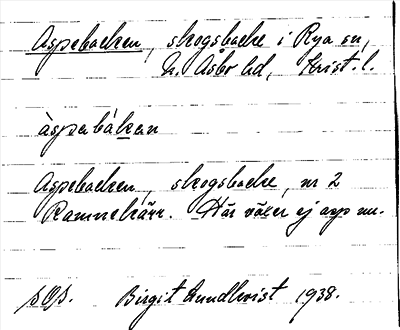 Aspebacken, skogsbacke i Rya sn,
N. Åsbo hd, Krist. l.
àspabákan
Aspebacken, skogsbacke, nr 2
Ramnekärr. Här växer ej asp nu.
SOS. Birgit Lundkvist 1938.